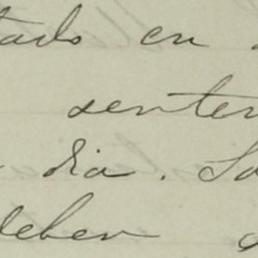 tado en
senten
dia. So
deben